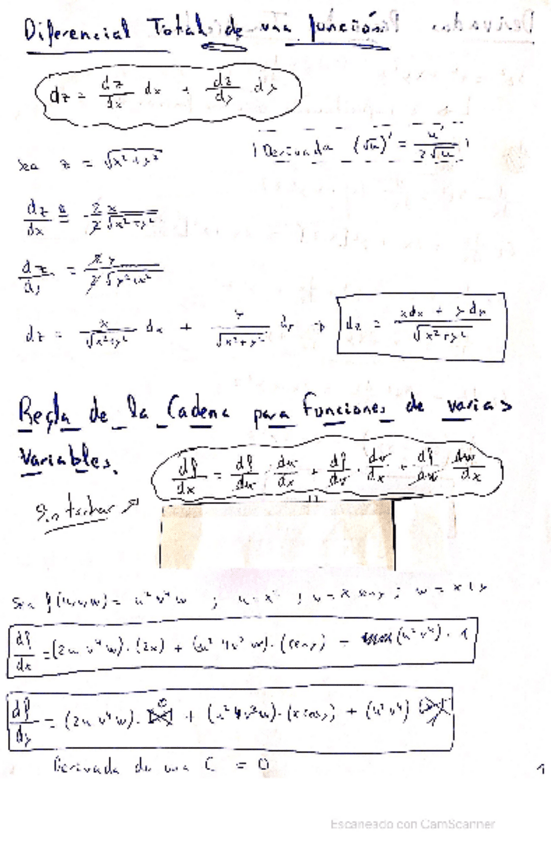 Diferencial Total de una función
dz = dz/dx dx + dz/dy dy
Sea z = √(x² + y²)
Derivada (√u)' = u'/2√u
dz/dx = 2x/2√(x² + y²)
dz/dy = 2y/2√(y² + x²)
dz = x/√(x² + y²) dx + y/√(x² + y²) dy → dz = (x dx + y dy)/√(x² + y²)
Regla de la Cadena para funciones de varias
Variables.
df/dx = df/du · du/dx + df/dv · dv/dx + df/dw · dw/dx
Sin tachar →
Sea f(u,v,w) = u² v⁴ w ; u = x² ; v = x seny ; w = x
df/dx = (2u v⁴ w) · (2x) + (u² 4v³ w) · (seny) + (u² v⁴) · 1
df/dy = (2u v⁴ w) · 0 + (u² 4v³ w) · (x cosy) + (u² v⁴)
Derivada de una C = 0
1
Escaneado con CamScanner